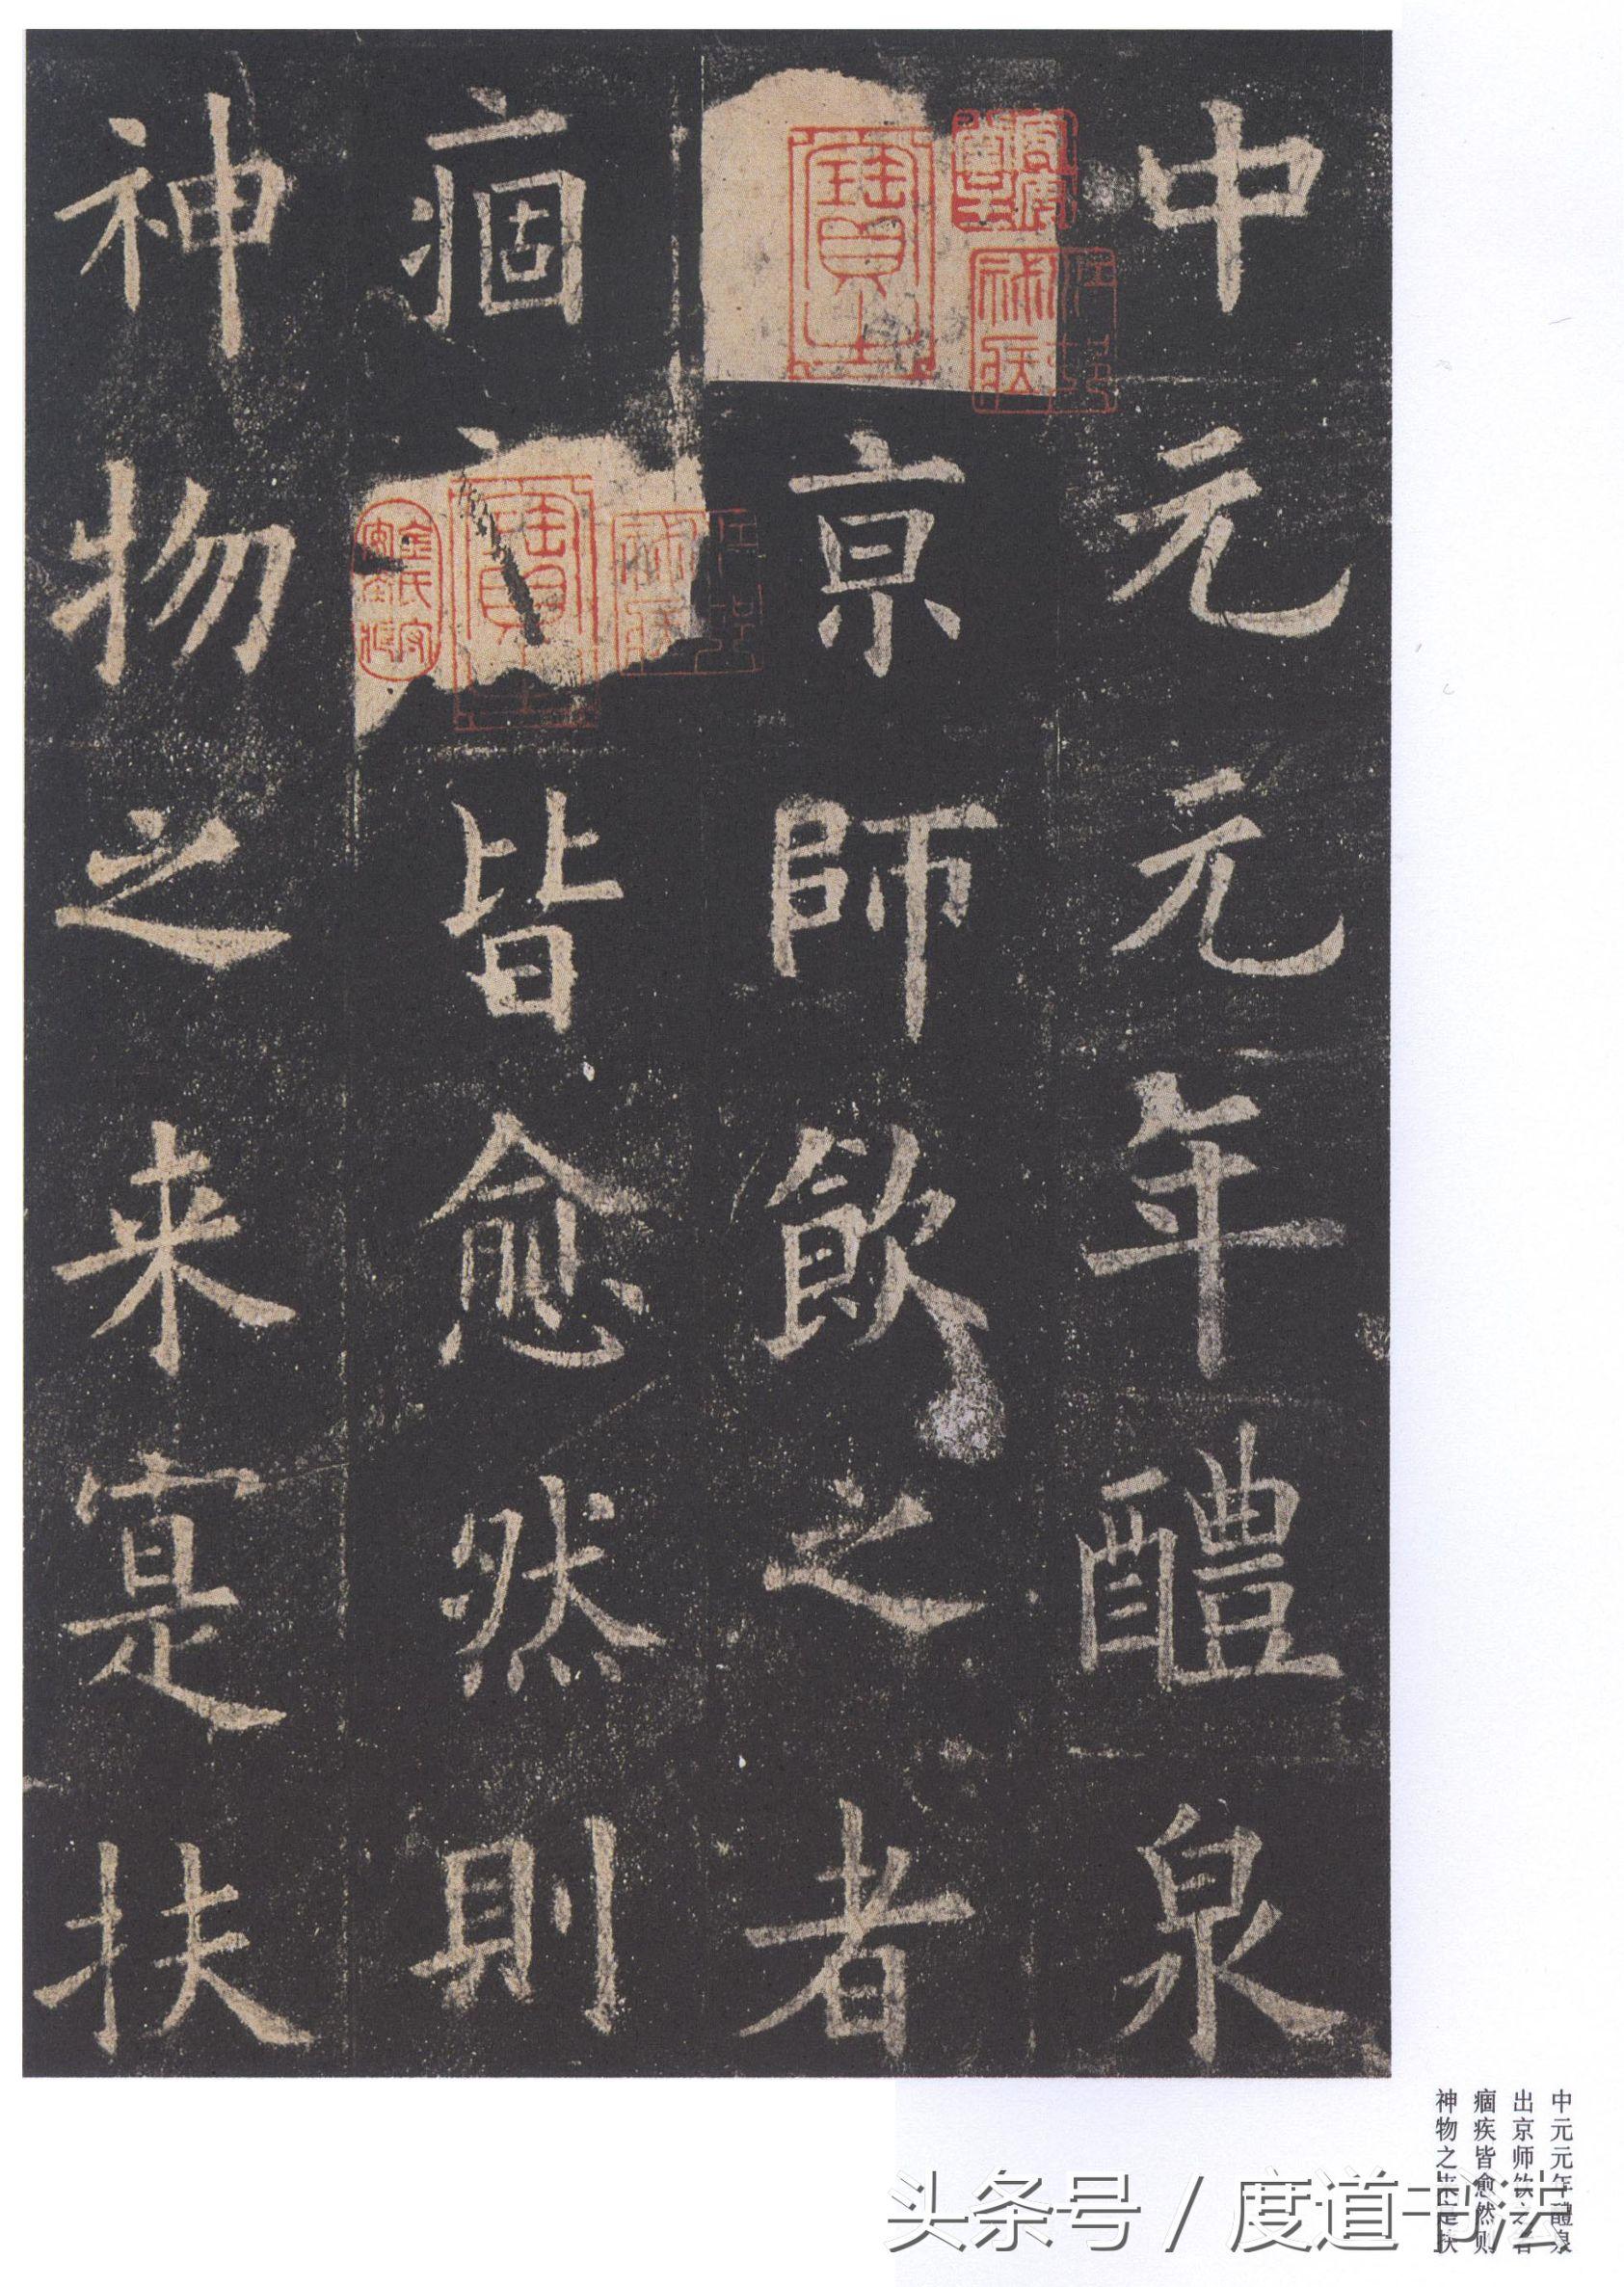 中元元年醴泉
京師飲之者
痼皆愈然則
神物之来寔扶
中元元年醴泉
出京师饮之者
痼疾皆愈然则
神物之来寔扶
头条号 / 度道书法